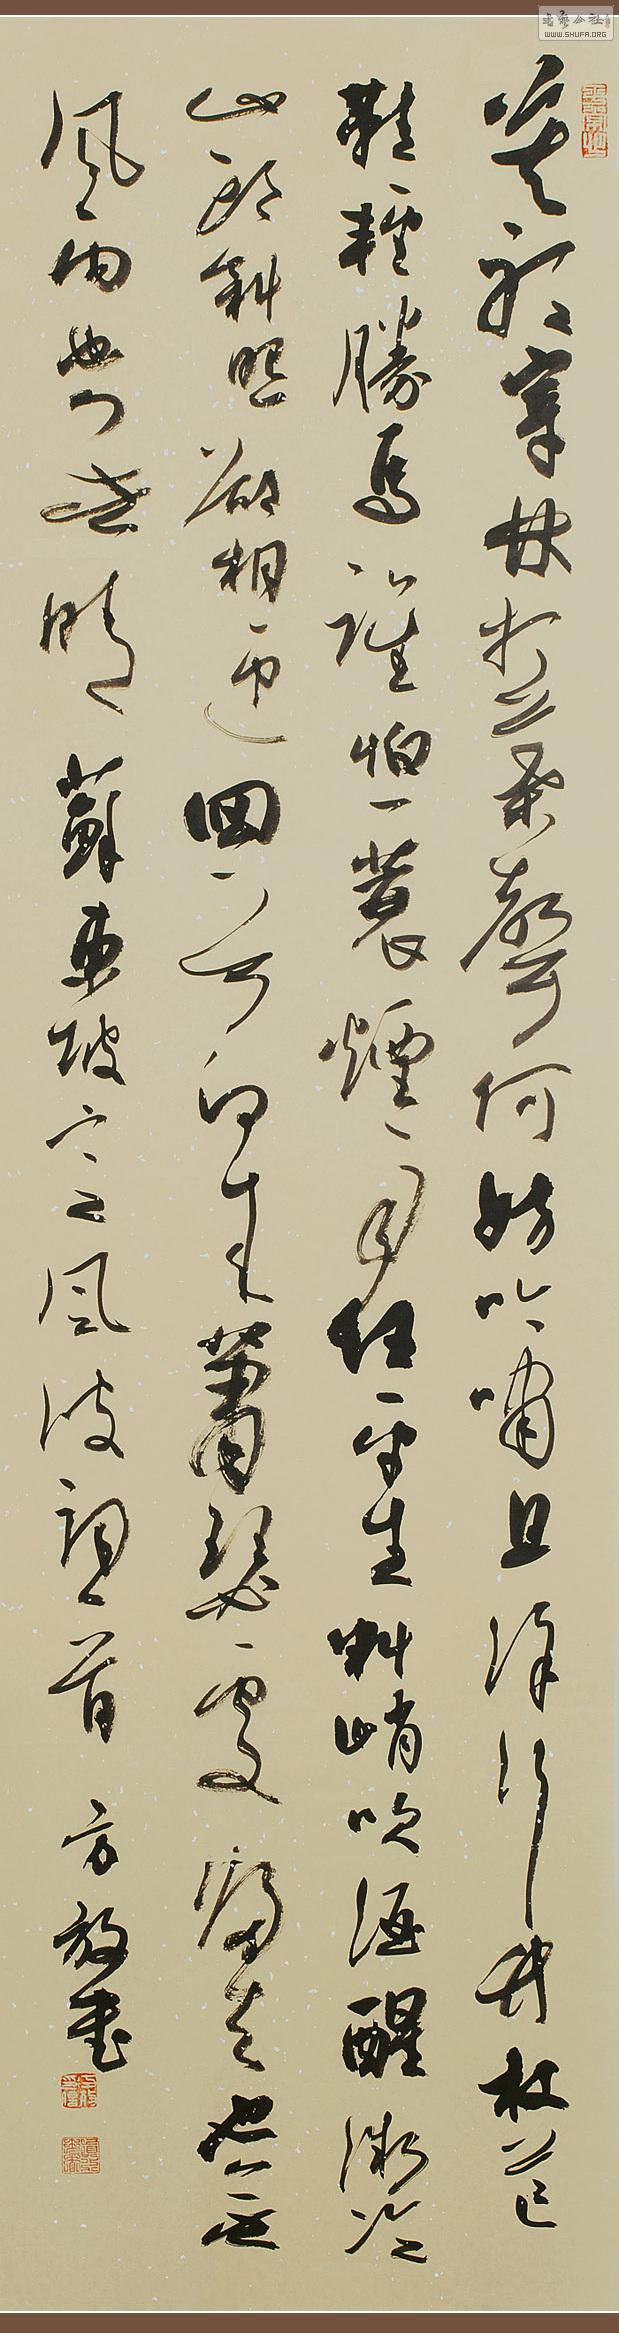 莫聽穿林打葉聲何妨吟嘯且徐行竹杖芒
鞋輕勝馬誰怕一蓑煙雨任平生料峭吹酒醒微冷
山頭斜照却相迎回首向來蕭瑟處歸去也無
風雨也無晴 蘇東坡定風波詞一首 方放書
书艺公社
WWW.SHUFA.ORG